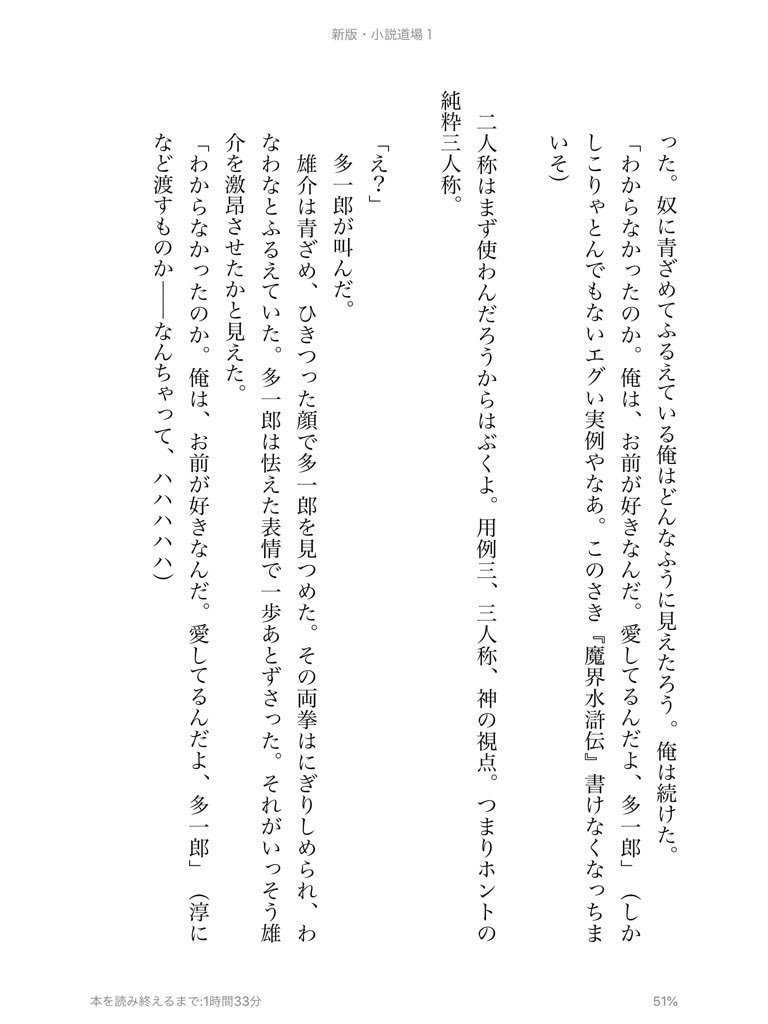 新版・小説道場1
った。奴に青ざめてふるえている俺はどんなふうに見えたろう。俺は続けた。
「わからなかったのか。俺は、お前が好きなんだ。愛してるんだよ、多一郎」（しか
しこりゃとんでもないエグい実例やなあ。このさき『魔界水滸伝』書けなくなっちま
いそ）
二人称はまず使わんだろうからはぶくよ。用例三、三人称、神の視点。つまりホントの
純粋三人称。
「え？」
多一郎が叫んだ。
雄介は青ざめ、ひきつった顔で多一郎を見つめた。その両拳はにぎりしめられ、わ
なわなとふるえていた。多一郎は怯えた表情で一歩あとずさった。それがいっそう雄
介を激昂させたかと見えた。
「わからなかったのか。俺は、お前が好きなんだ。愛してるんだよ、多一郎」（淳に
など渡すものか――なんちゃって、ハハハハハ）
本を読み終えるまで:1時間33分
51%